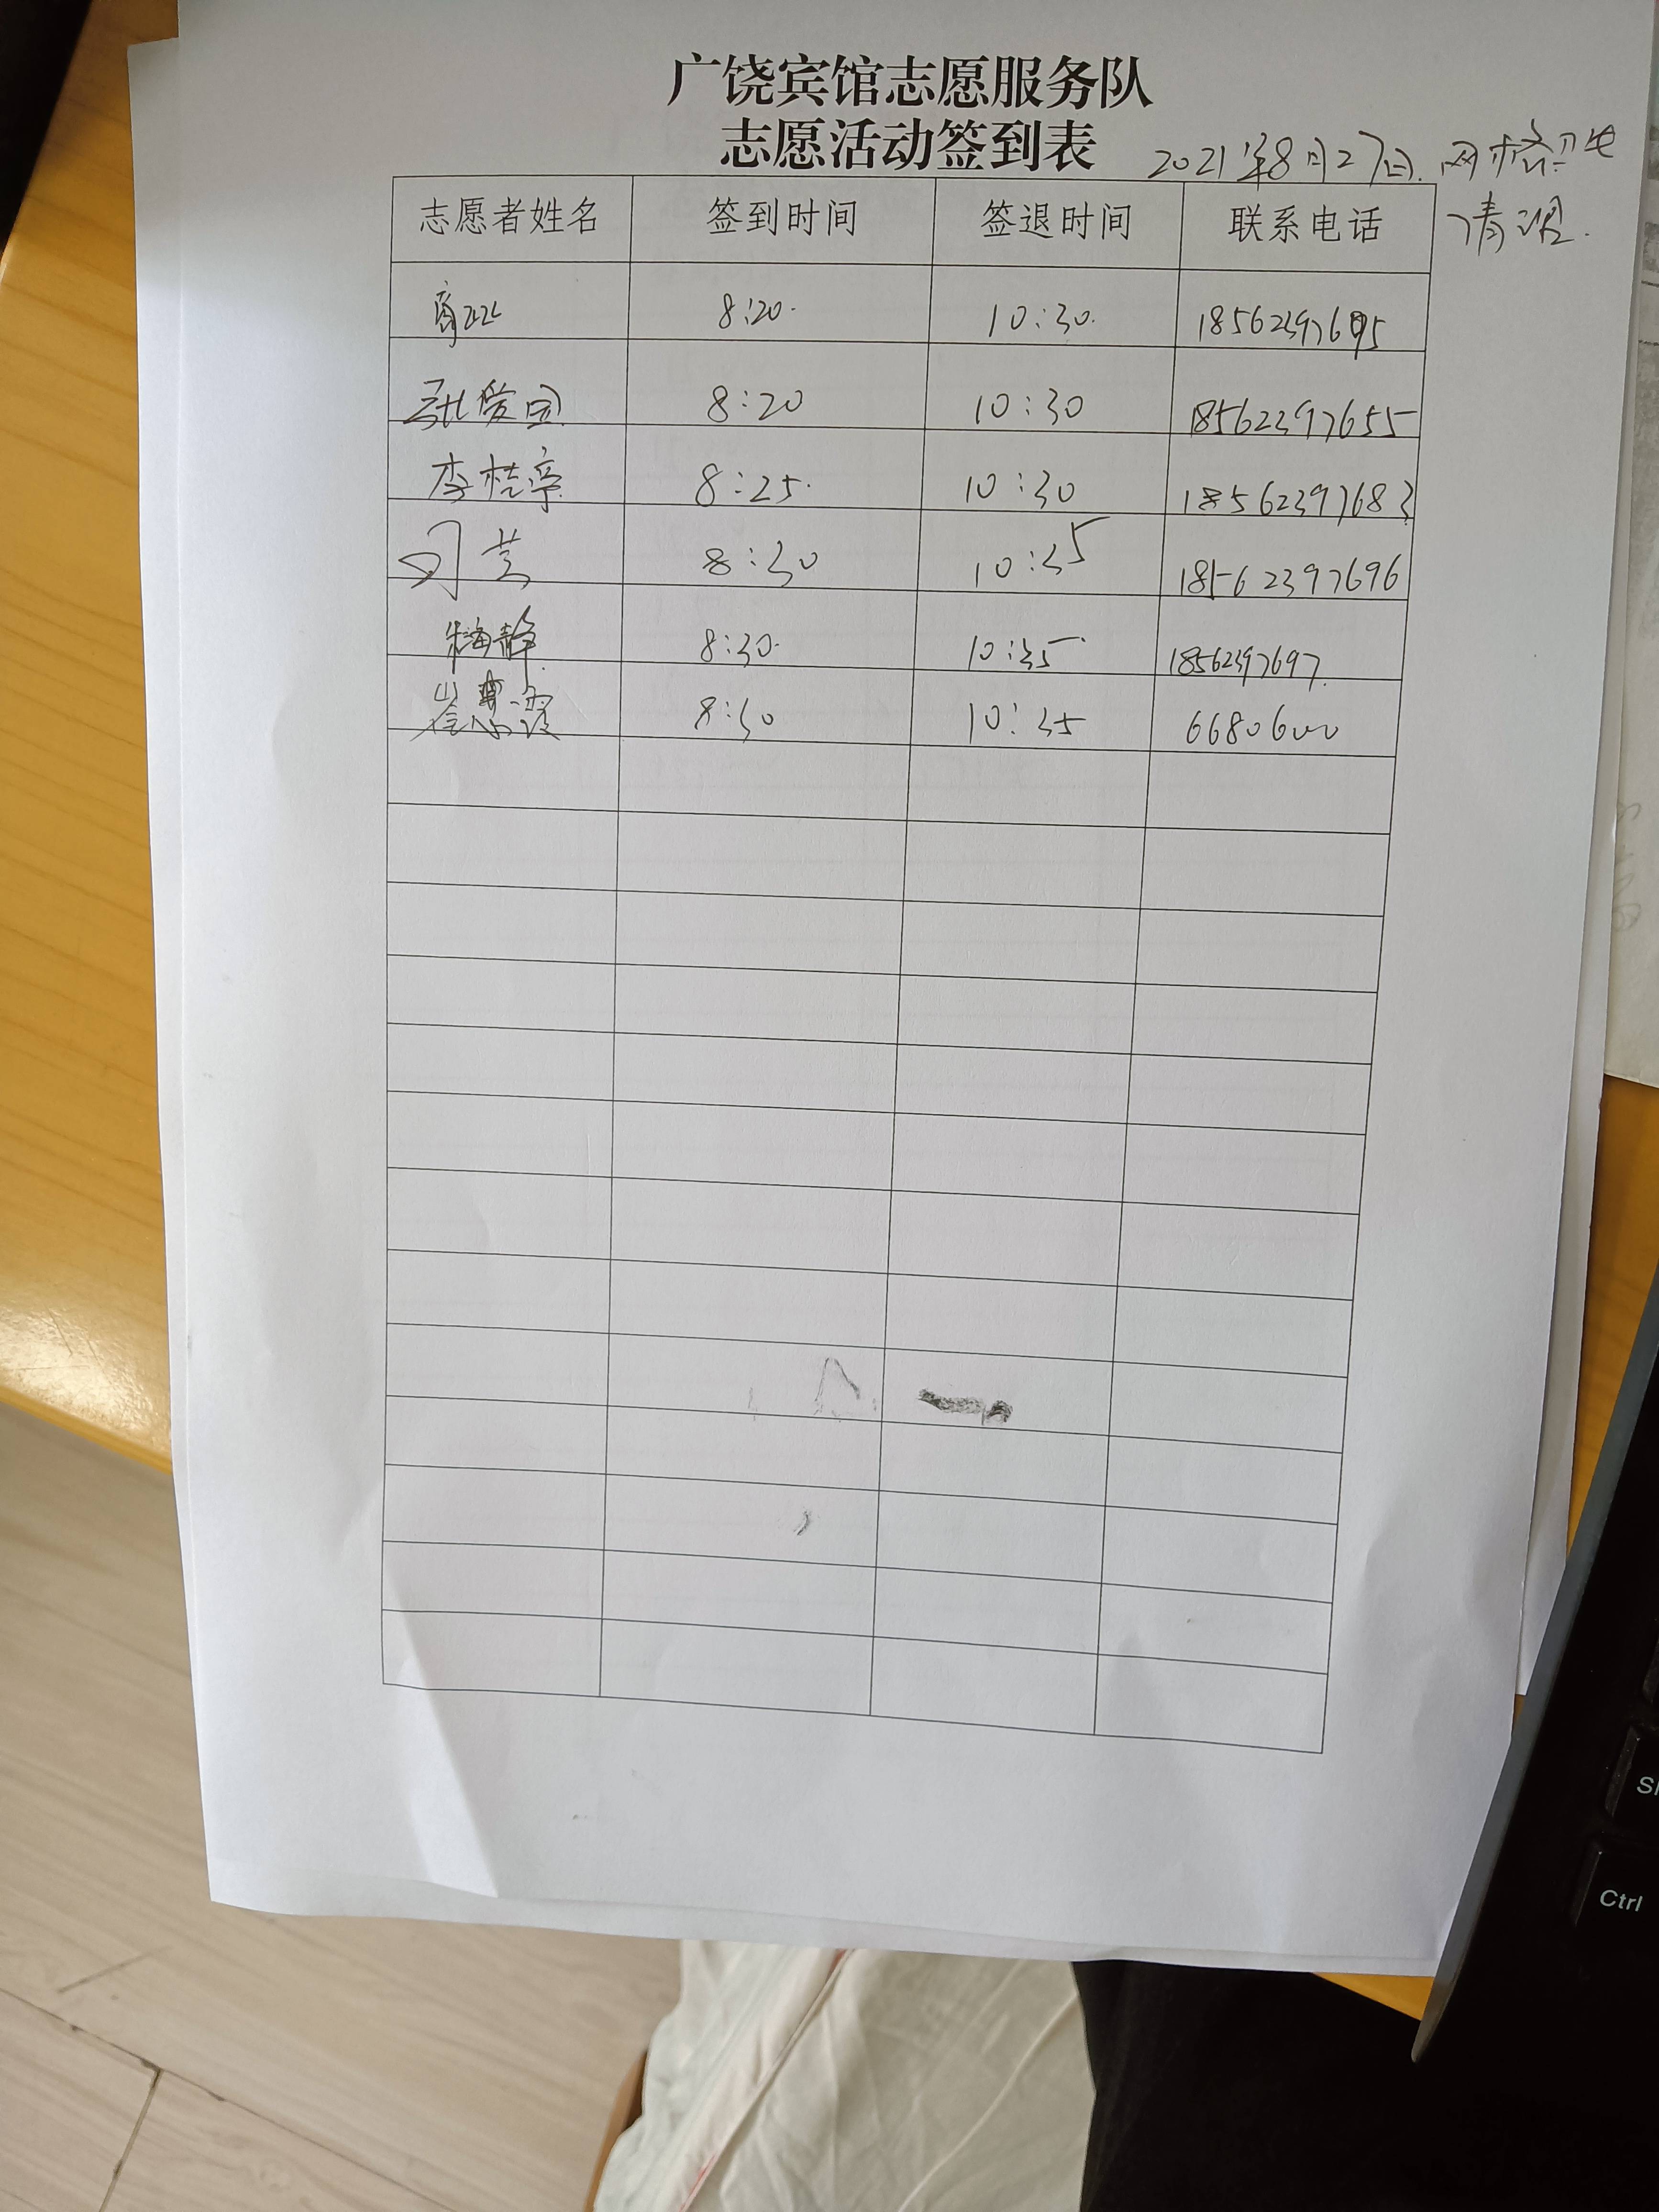 广饶宾馆志愿服务队
志愿活动签到表
2021年8月27日.网格
清理.
志愿者姓名 签到时间 签退时间 联系电话
8:20. 10:30. 18562397695
张爱国 8:20 10:30 18562397655
李桂亭 8:25. 10:30 18562397683
8:30 10:35 18562397696
梅静 8:30. 10:35 18562397697.
崔惠霞 8:30 10:35 6680600
Ctrl